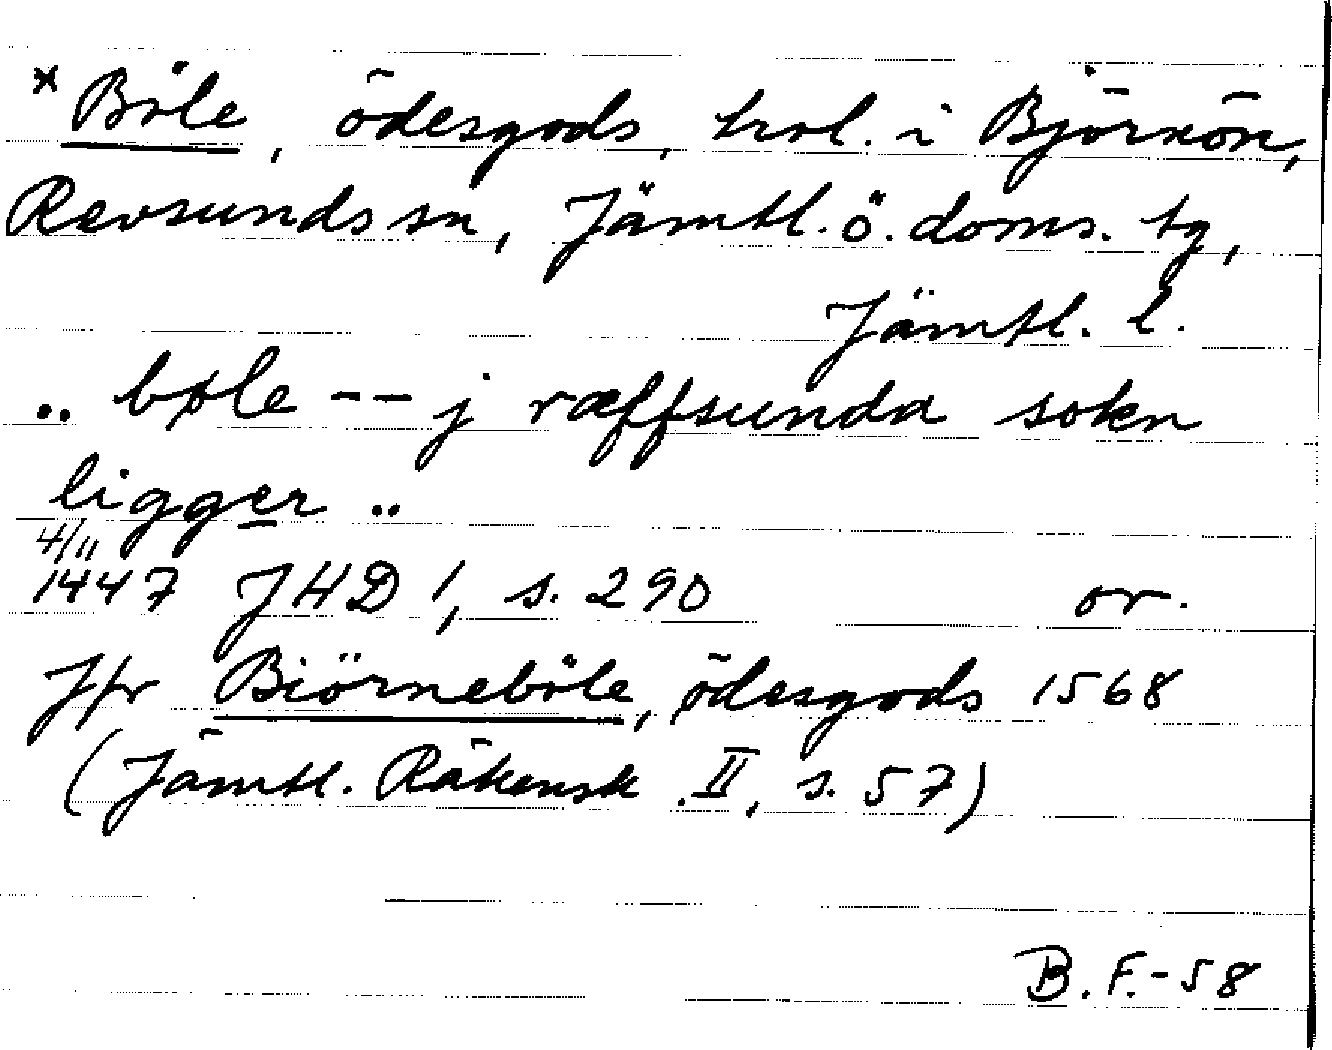 * Böle, ödesgods, trol. i Björnön,
Revsunds sn, Jämtl. ö. doms. tg,
Jämtl. l.
.. bøle -- j ræffsunda sokn
ligger ..
4/11
1447 JHD 1, s. 290 or.
Jfr Biörneböle, ödesgods 1568
(Jämtl. Räkensk. II, s. 57)
B.F.-58